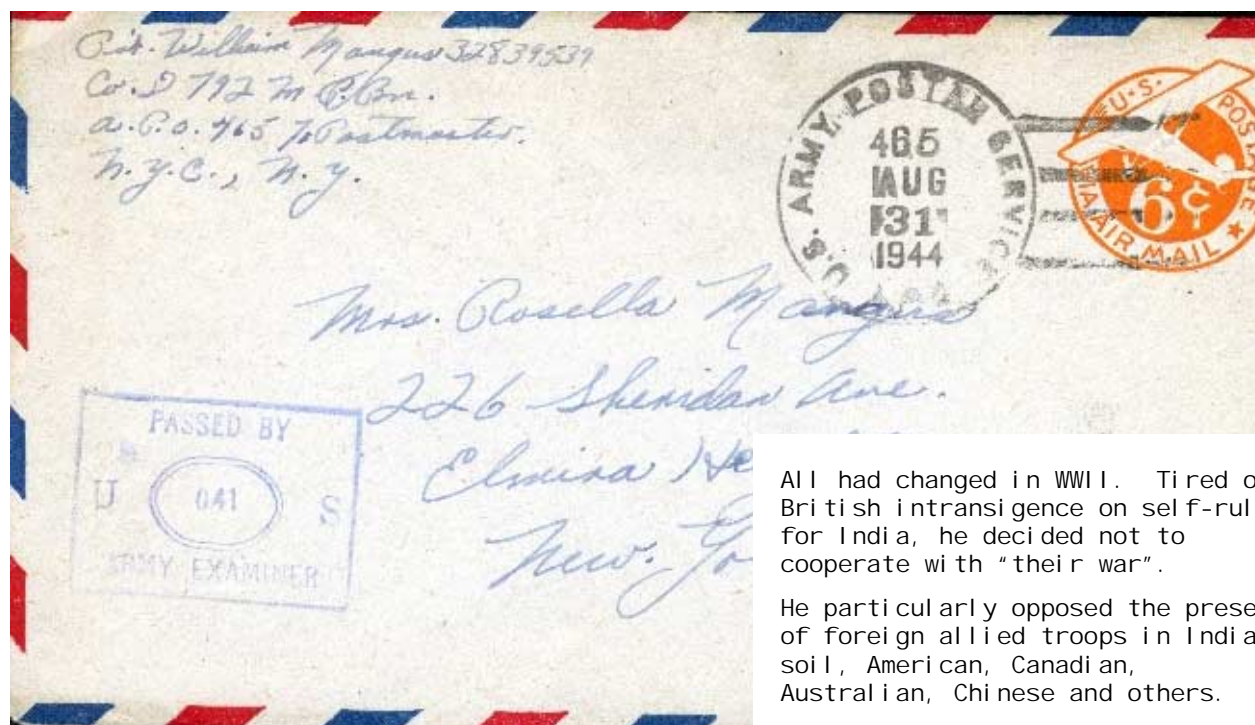 Pvt. William Mangus 32839539
Co. D 792 M.P. Bn.
A.P.O. 465 % Postmaster.
N.Y.C., N.Y.
U.S. ARMY POSTAL SERVICE
465
AUG
31
1944
U.S. POSTAGE
6¢
VIA AIR MAIL
Mrs. Rosella Mangus
226 Sheridan Ave.
Elmira He
New Yo
PASSED BY
U 041 S
ARMY EXAMINER
All had changed in WWII. Tired o
British intransigence on self-rul
for India, he decided not to
cooperate with “their war”.
He particularly opposed the prese
of foreign allied troops in India
soil, American, Canadian,
Australian, Chinese and others.